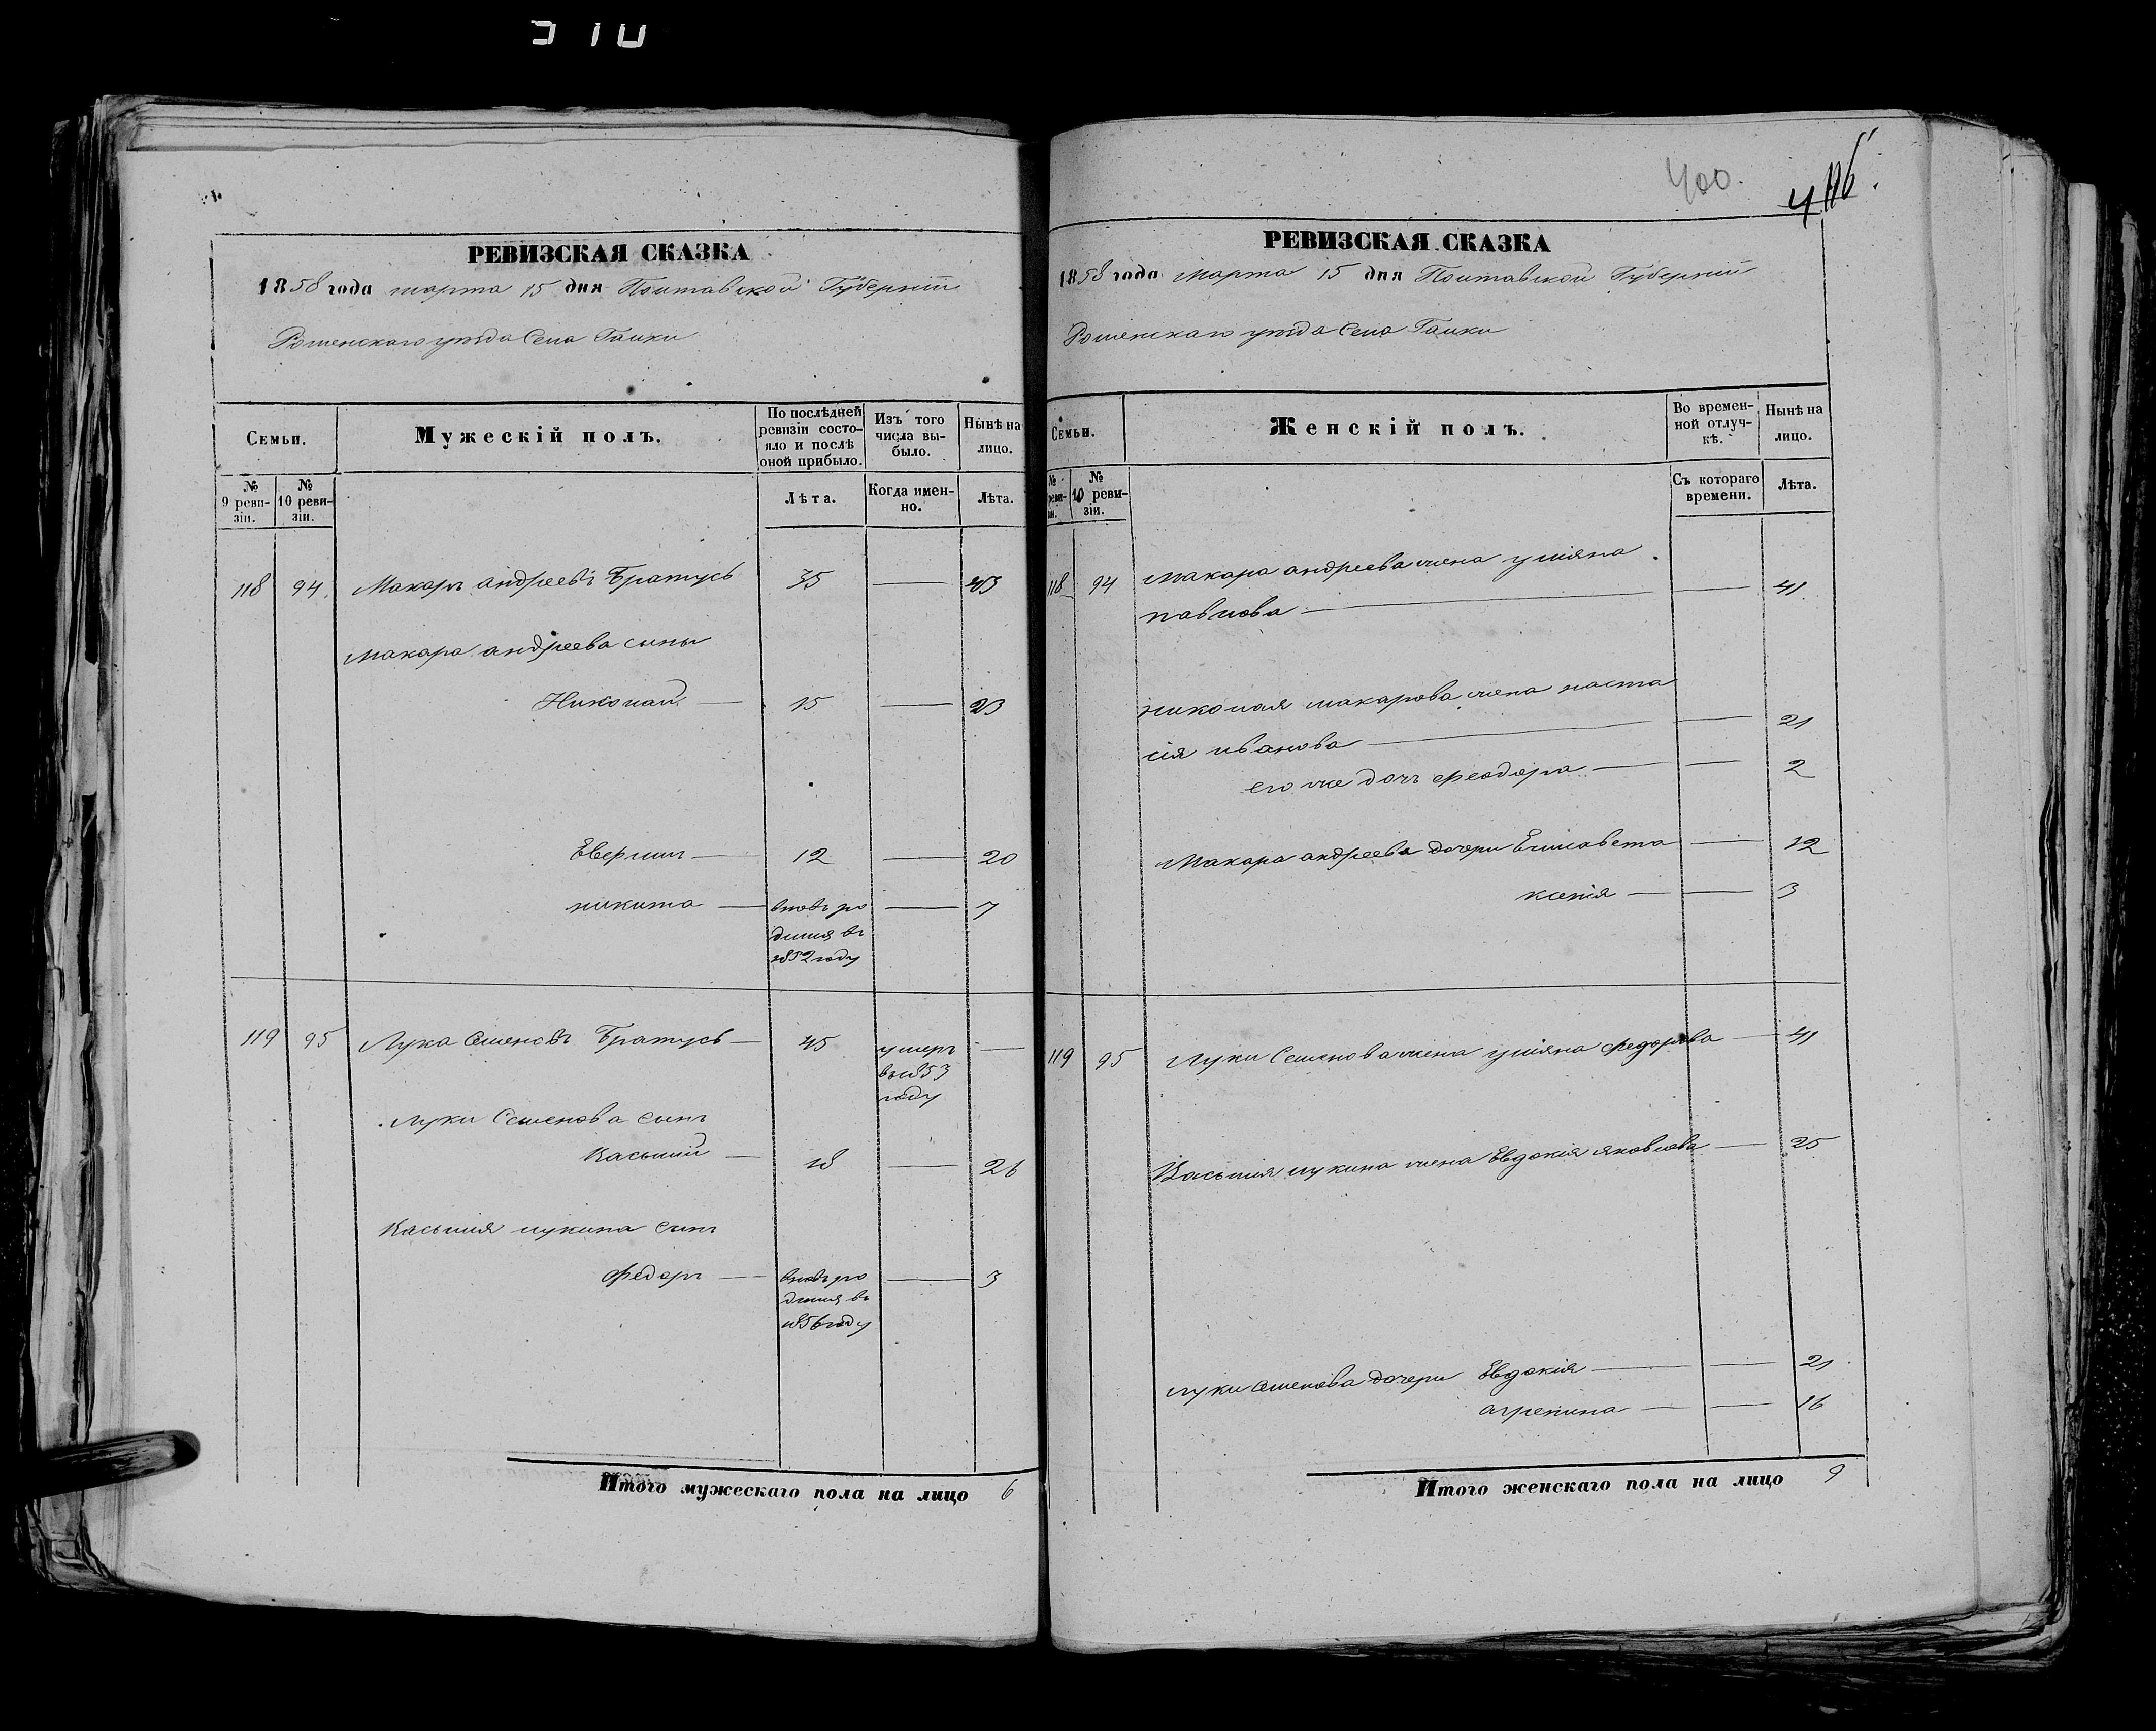 310
РЕВИЗСКАЯ СКАЗКА
1858 года марта 15 дня Полтавской Губерніи
Роменскаго уѣзда Села Галки
Семьи.
Мужескій полъ.
По послѣдней ревизіи состояло и послѣ оной прибыло.
Изъ того числа выбыло.
Нынѣ на лицо.
№ 9 ревизіи.
№ 10 ревизіи.
Лѣта.
Когда именно.
Лѣта.
118 94 Макаръ андреевъ Братусь 35 — 43
Макара андреева сыны
Николай — 15 — 23
Еверлип — 12 — 20
никита — вновь ро — 7
дился въ
1852 году
119 95 Лука Семеновъ Братусь — 45 умеръ —
въ 1853
году
Луки Семенова сынъ
Касьянъ — 18 — 26
Касьяна лукина сынъ
Федоръ — вновь ро — 3
дился въ
1856 году
Итого мужескаго пола на лицо 6
400.
416.
РЕВИЗСКАЯ СКАЗКА
1858 года Марта 15 дня Полтавской Губерніи
Роменскаго уѣзда Села Галки
Семьи.
Женскій полъ.
Во временной отлучкѣ.
Нынѣ на лицо.
№ реви-
зи.
№ 10 ревизіи.
Съ котораго времени.
Лѣта.
118 94 Макара андреева жена уліяна
павлова — — 41
николая макарова жена наста
сія иванова — — 21
его же дочь феодора — — 2
Макара андреева дочери Елисавета — 12
ксенія — — 3
119 95 Луки Семенова жена уліяна федорова — 41
Касьяна лукина жена Евдокія яковлева — 25
луки семенова дочери Евдокія — — 21
агрепина — — 16
Итого женскаго пола на лицо 9